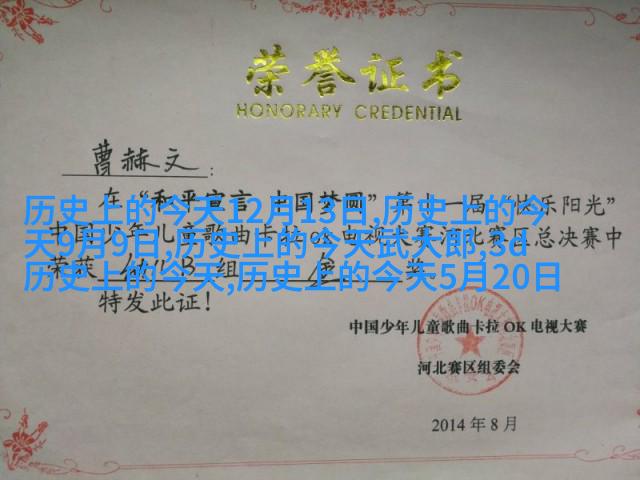 荣誉证书
HONORARY CREDENTIAL
曹赫文:
在“和平宣言 中国梦圆”第十一届“快乐阳光”
中国少年儿童歌曲卡拉OK电视大赛河北赛区总决赛中
荣获 组 金 奖
特发此证!
历史上的今天12月13日,历史上的今
天9月9日,历史上的今天武大郎,sd
历史上的今天,历史上的今天5月20日
中国少年儿童歌曲卡拉OK电视大赛
河北赛区组委会
2014年8月